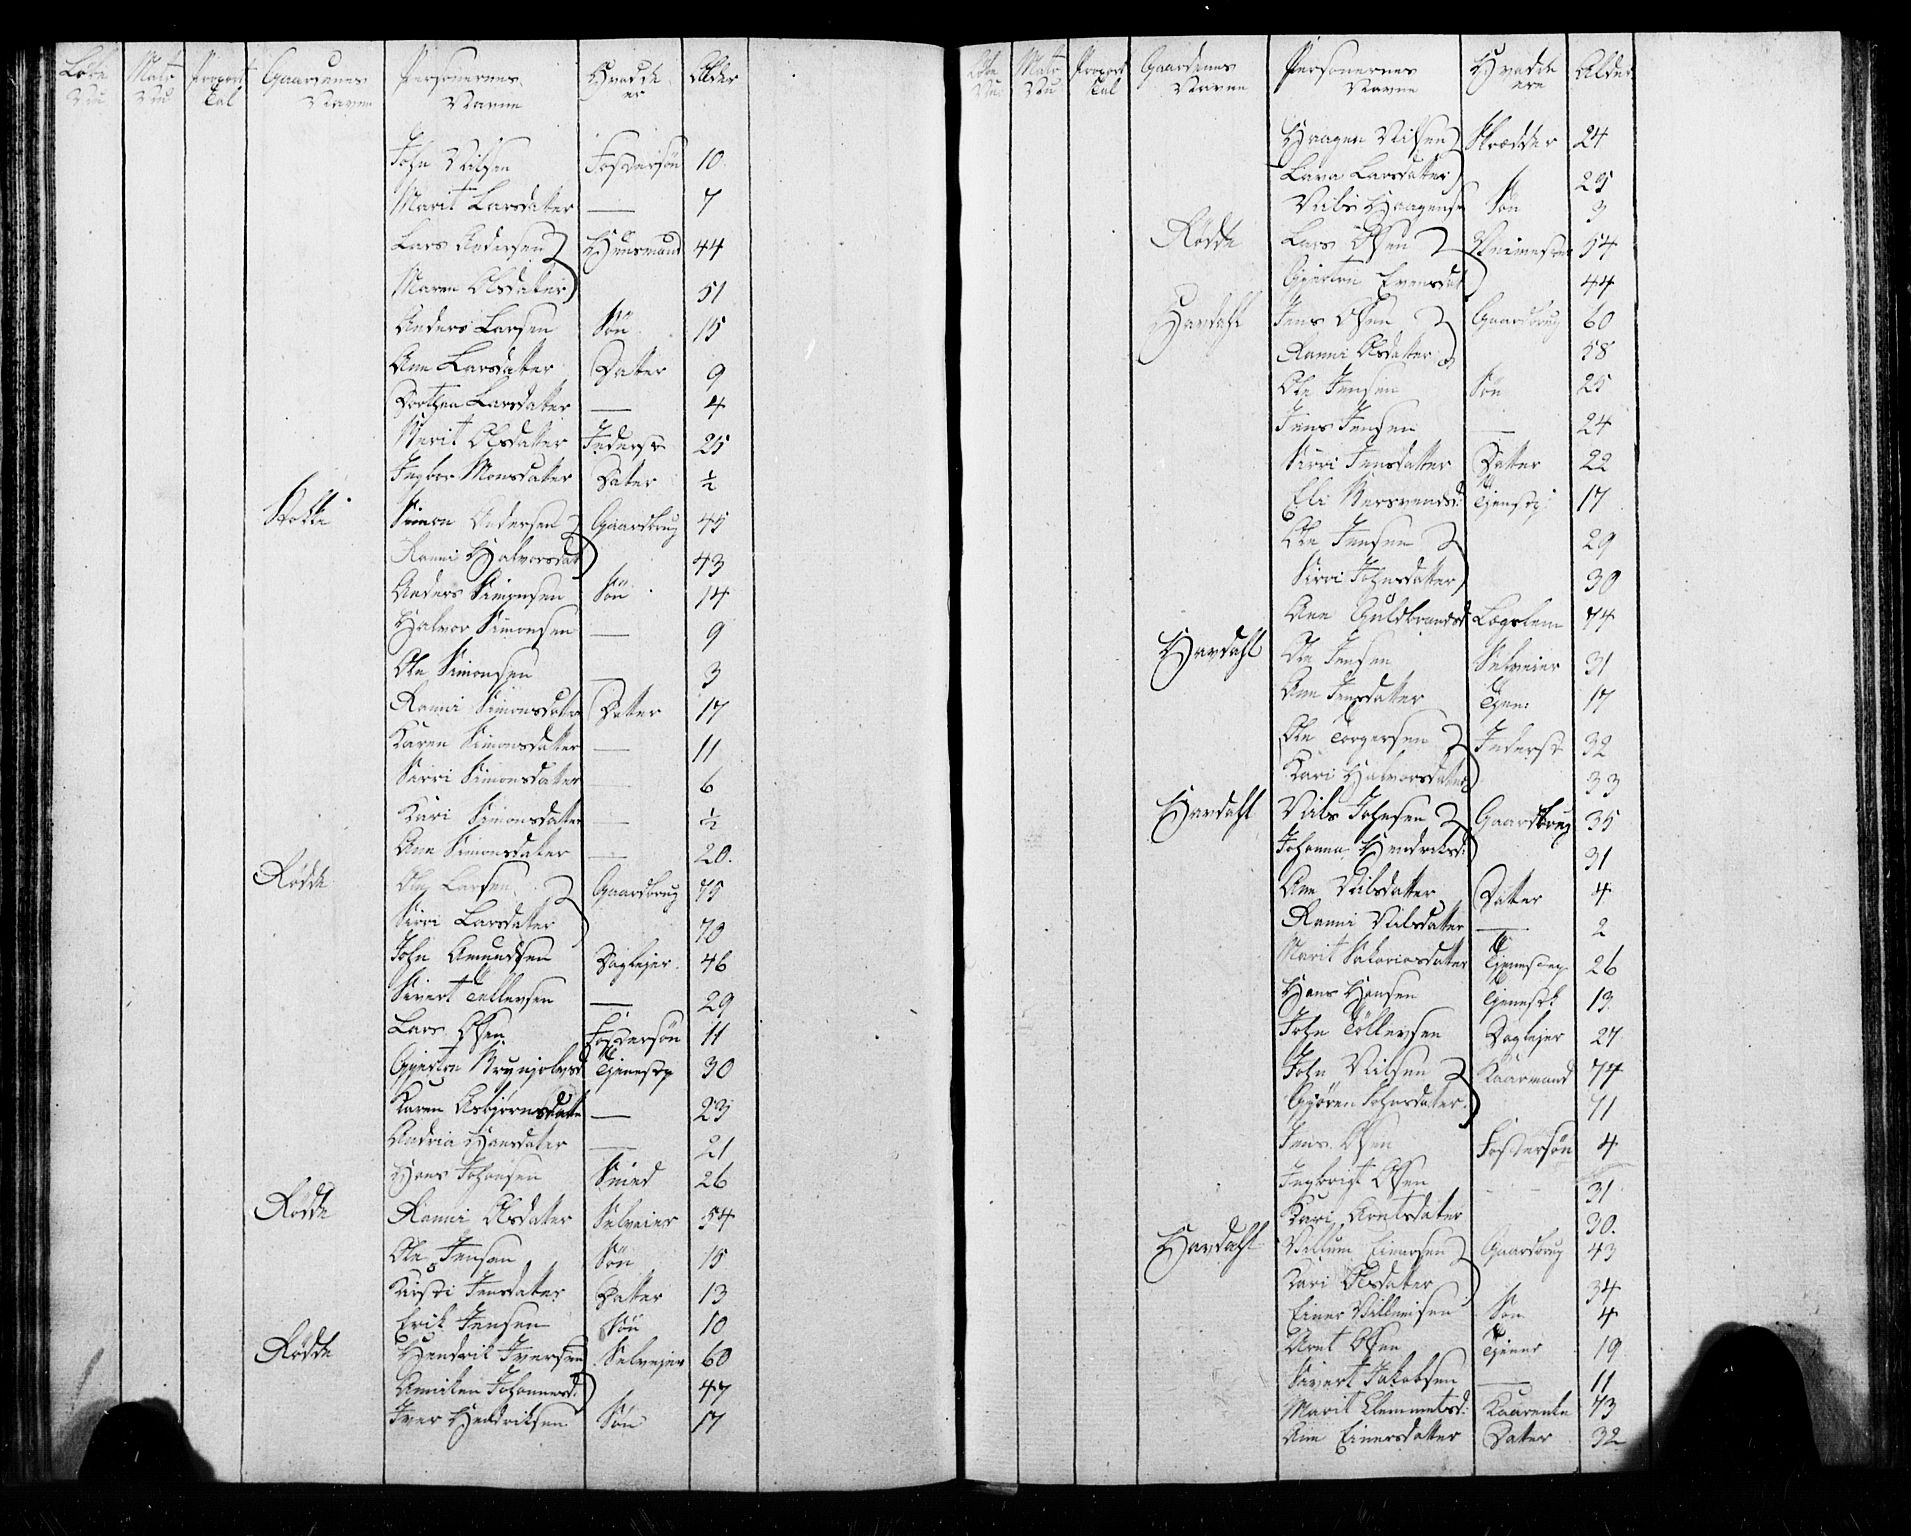 Løbe Nu	Matr Nu	Proport Tal	Gaardenes Navne	Personernes Navne	Hvad de er	Alder
John Nilsen	Fostersøn	10
Marit Larsdatter	—	7
Lars Andersen	Huusmand	44
Maren Olsdatter	51
Anders Larsen	Søn	15
Ane Larsdatter	Datter	9
Dorthea Larsdatter	—	4
Marit Olsdatter	Inderst	25
Ingbor Monsdatter	Dater	½
Stokke	Simon Andersen	Gaardbrug	45
Ranni Halvorsdat	43
Anders Simonsen	Søn	14
Halvor Simonsen	—	9
Ole Simonsen	—	3
Ranni Simonsdater	Datter	17
Karen Simonsdatter	—	11
Sirri Simonsdatter	—	6
Kari Simonsdatter	—	½
Ane Simonsdater	—	20.
Rødde	Ole Larsen	Gaardbrug	75
Sirri Larsdatter	70
John Amundsen	Daglejer	46
Sivert Tellevsen	—	29
Lars Olsen	Fostersøn	11
Gjertru Brynjolvsd	Tjenestp	30
Karen Asbjørnsdatte	—	23
Andria Hansdater	—	21
Hans Johansen	Smed	26
Rødde	Ranni Olsdater	Selveier	54
Ole Jensen	Søn	15
Kirsti Jensdatter	Datter	13
Erik Jensen	Søn	10
Rødde	Hendrik Iversen	Selvejer	60
Anniken Johannesd:	47
Iver Hendriksen	Søn	17
Løbe Nu	Matr Nu	Proport Tal	Gaardenes Navne	Personernes Navne	Hvad de ere	Alder
Haagen Nilsen	Skrædder	24
Lava Larsdatter	25
Nils Haagens	Søn	3
Rødde	Lars Olsen	54
Gjertru Evensdat	44
Havdahl	Jens Olsen	Gaardbrug	60
Ranni Olsdatter	58
Ole Jensen	Søn	25
Jens Jensen	—	24
Sirri Jensdatter	Datter	22
Eli Mersvendsd:	Tjenstp:	17
Ole Jensen	29
Sirri Johnsdatter	30
Ane Guldbrandsd	Lægslem	74
Havdahl	Ole Jensen	Selveier	31
Ane Jensdatter	Tjen:	17
Ole Torgersen	Inderst	32
Kari Halvorsdatter	33
Havdahl	Nils Johnsen	Gaardbrug	35
Johanna Hendriksd:	31
Ane Nilsdatter	Datter	4
Ranni Nilsdatter	—	2
Marit Sakariasdatter	Tjenestep	26
Hans Hansen	Tjenestk	13
John Tøllevsen	Daglejer	27
John Nilsen	Kaarmand	74
Gjøren Johnsdater	71
Jens Olsen	Fostersøn	4
Ingbrigt Olsen	31
Kari Arntsdater	30.
Havdahl	Villum Einersen	Gaardbrug	43
Kari Olsdatter	34
Einer Villumsen	Søn	4
Arnt Olsen	Tjener	19
Sivert Jakobsen	—	11
Marit Clemmetsd:	Kaarenke	73
Ane Einersdatter	Dater	32